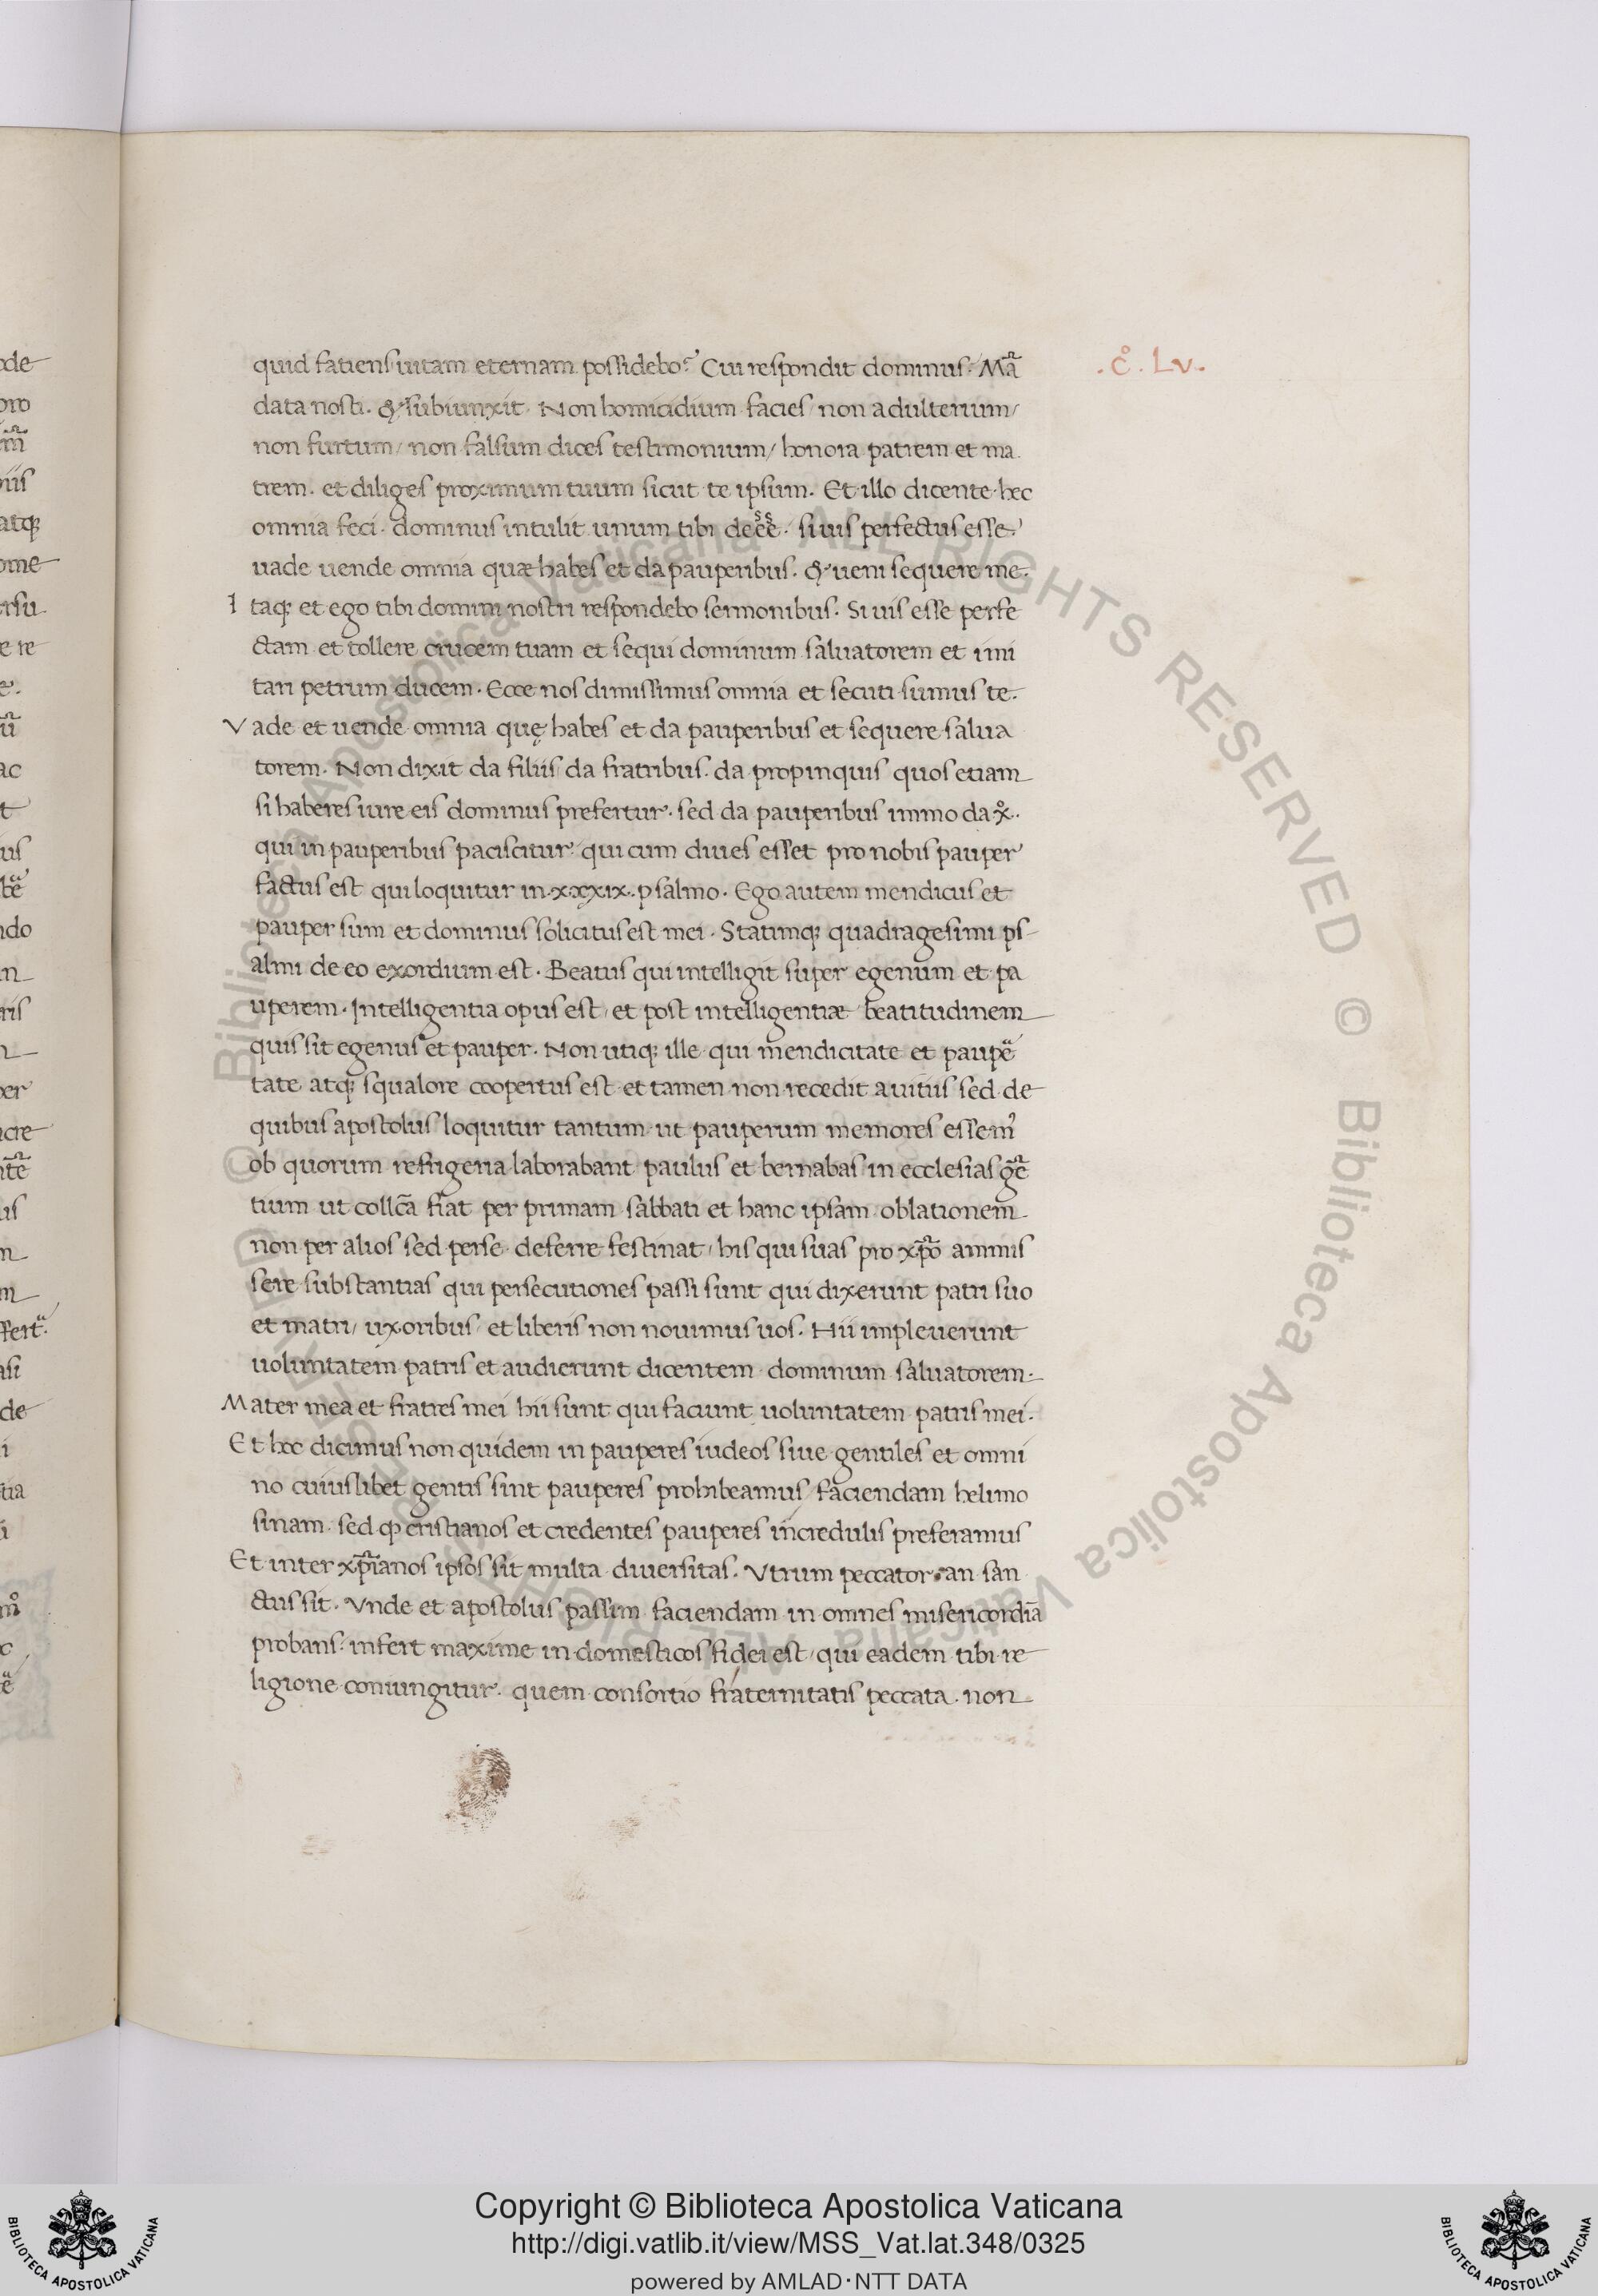 quid fatiens uitam eternam possidebo? Cui respondit dominus. Mã
data nosti. & subiunxit. Non homicidium facies / non adulterium /
non furtum / non falsum dices testimonium / honora patrem et ma
trem. et diliges proximum tuum sicut te ipsum. Et illo dicente hec
omnia feci. dominus intulit unum tibi deẽẽ. si uis perfectus esse
uade uende omnia quæ habes et da pauperibus. & ueni sequere me.
I taq; et ego tibi domini nostri respondebo sermonibus. Si uis esse perfe
ctam et tollere crucem tuam et sequi dominum saluatorem et imi
tari petrum ducem. Ecce nos dimissimus omnia et secuti sumus te.
V ade et uende omnia quę habes et da pauperibus et sequere salua
torem. Non dixit da filiis / da fratribus. da propinquis quos etiam
si haberes iure eis dominus prefertur. sed da pauperibus immo da x̊.
qui in pauperibus paciscitur qui cum diues esset pro nobis pauper
factus est qui loquitur in .xxxix. psalmo. Ego autem mendicus et
pauper sum et dominus solicitus est mei. Statimq; quadragesimi ps
almi de eo exordium est. Beatus qui intelligit super egenum et pa
uperem. Intelligentia opus est / et post intelligentiæ beatitudinem
quis sit egenus et pauper. Non utiq; ille qui mendicitate et paupẽ
tate atq; squalore coopertus est et tamen non recedit a uitiis sed de
quibus apostolus loquitur tantum ut pauperum memores essem̉
ob quorum refrigeria laborabant paulus et bernabas in ecclesias gẽ
tium ut collc̃a fiat per primam sabbati et hanc ipsam oblationem
non per alios sed per se deferre festinat / his qui suas pro xp̃o ammis
sere substantias qui persecutiones passi sunt qui dixerunt patri suo
et matri / uxoribus / et liberis non nouimus uos. Hii impleuerunt
uoluntatem patris et audierunt dicentem dominum saluatorem.
M ater mea et fratres mei hii sunt qui faciunt uoluntatem patris mei.
E t hoc dicimus non quidem in pauperes iudeos siue gentiles et omni
no cuiuslibet gentis sint pauperes prohibeamus / faciendam helimo
sinam. sed ꝙ cristianos et credentes pauperes incredulis preferamus
E t inter xp̃ianos ipsos sit multa diuersitas. Vtrum peccator an san
ctus sit. Vnde et apostolus passim faciendam in omnes misericordiã
probans. infert maxime in domesticos fidei est / qui eadem tibi re
ligione coniungitur. quem consortio fraternitatis peccata non
.c̊. Lv.
Copyright © Biblioteca Apostolica Vaticana
http://digi.vatlib.it/view/MSS_Vat.lat.348/0325
powered by AMLAD·NTT DATA
BIBLIOTECA APOSTOLICA VATICANA
BIBLIOTECA APOSTOLICA VATICANA